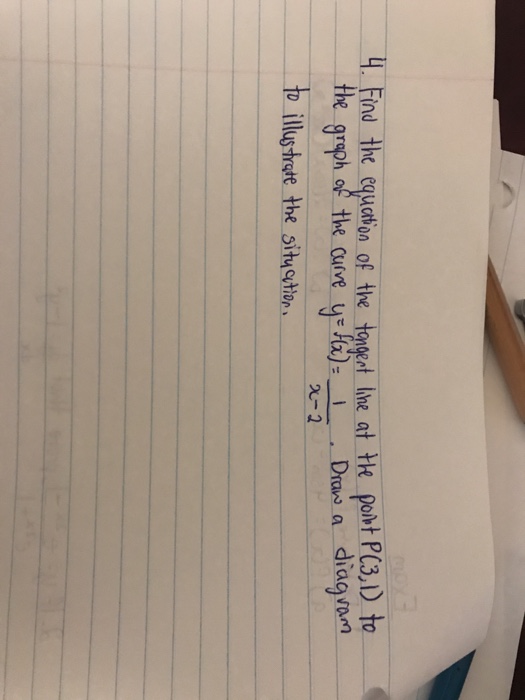 4. Find the equation of the tangent line at the point P(3,1) to
the graph of the curve y = f(x) = 1/(x-2). Draw a diagram
to illustrate the situation.